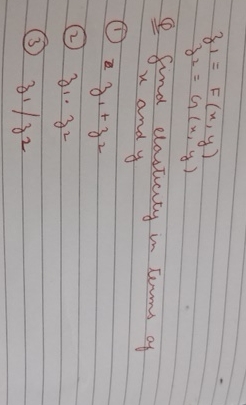 z₁ = F(x, y)
z₂ = G(x, y)
Q find elasticity in terms of
x and y
① z₁ + z₂
② z₁ . z₂
③ z₁ / z₂